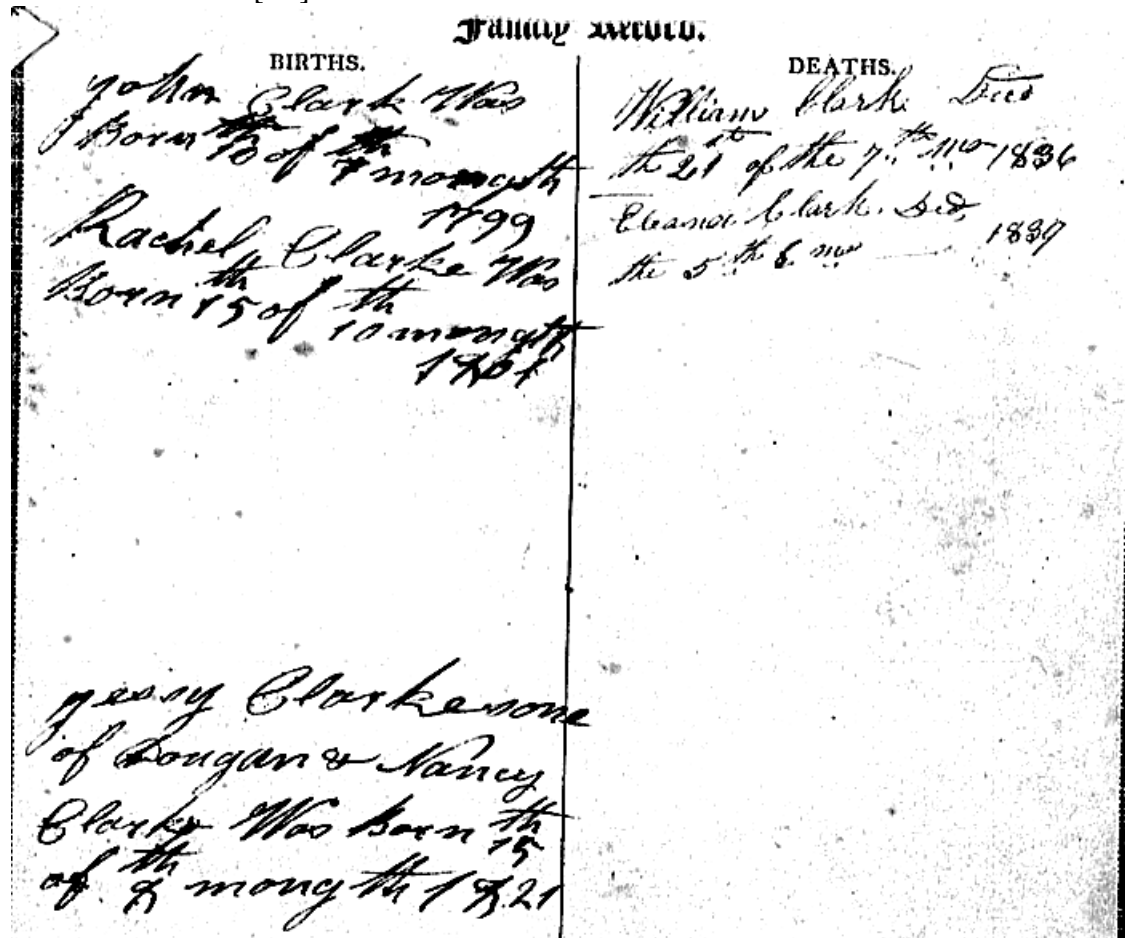 Family Record.
BIRTHS.
John Clark Was
Born th 10 of th 7 mongth
1799
Rachel Clarke Was
Born th 15 of th 10 mongth
1801
Jessy Clarke sone
of Dougan & Nancy
Clarke Was Born th 15
of th 8 mongth 1821
DEATHS.
William Clark Died
the 21st of the 7th mo 1836
Eleanor Clark. Did,
the 5th 8 mo 1839